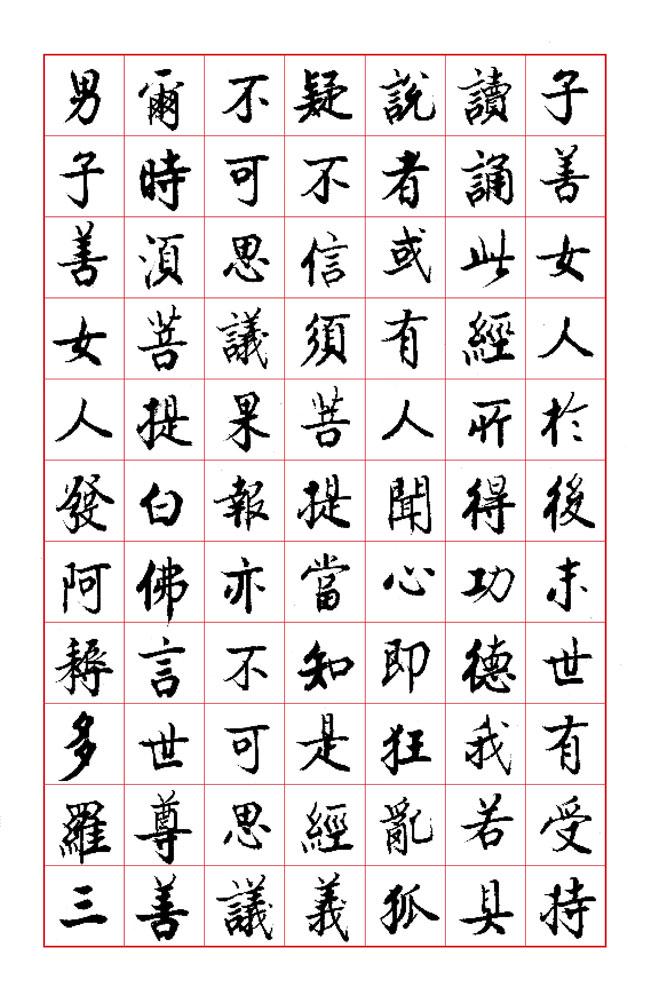 子善女人於後末世有受持
讀誦此經所得功德我若具
說者或有人聞心即狂亂狐
疑不信須菩提當知是經義
不可思議果報亦不可思議
爾時須菩提白佛言世尊善
男子善女人發阿耨多羅三